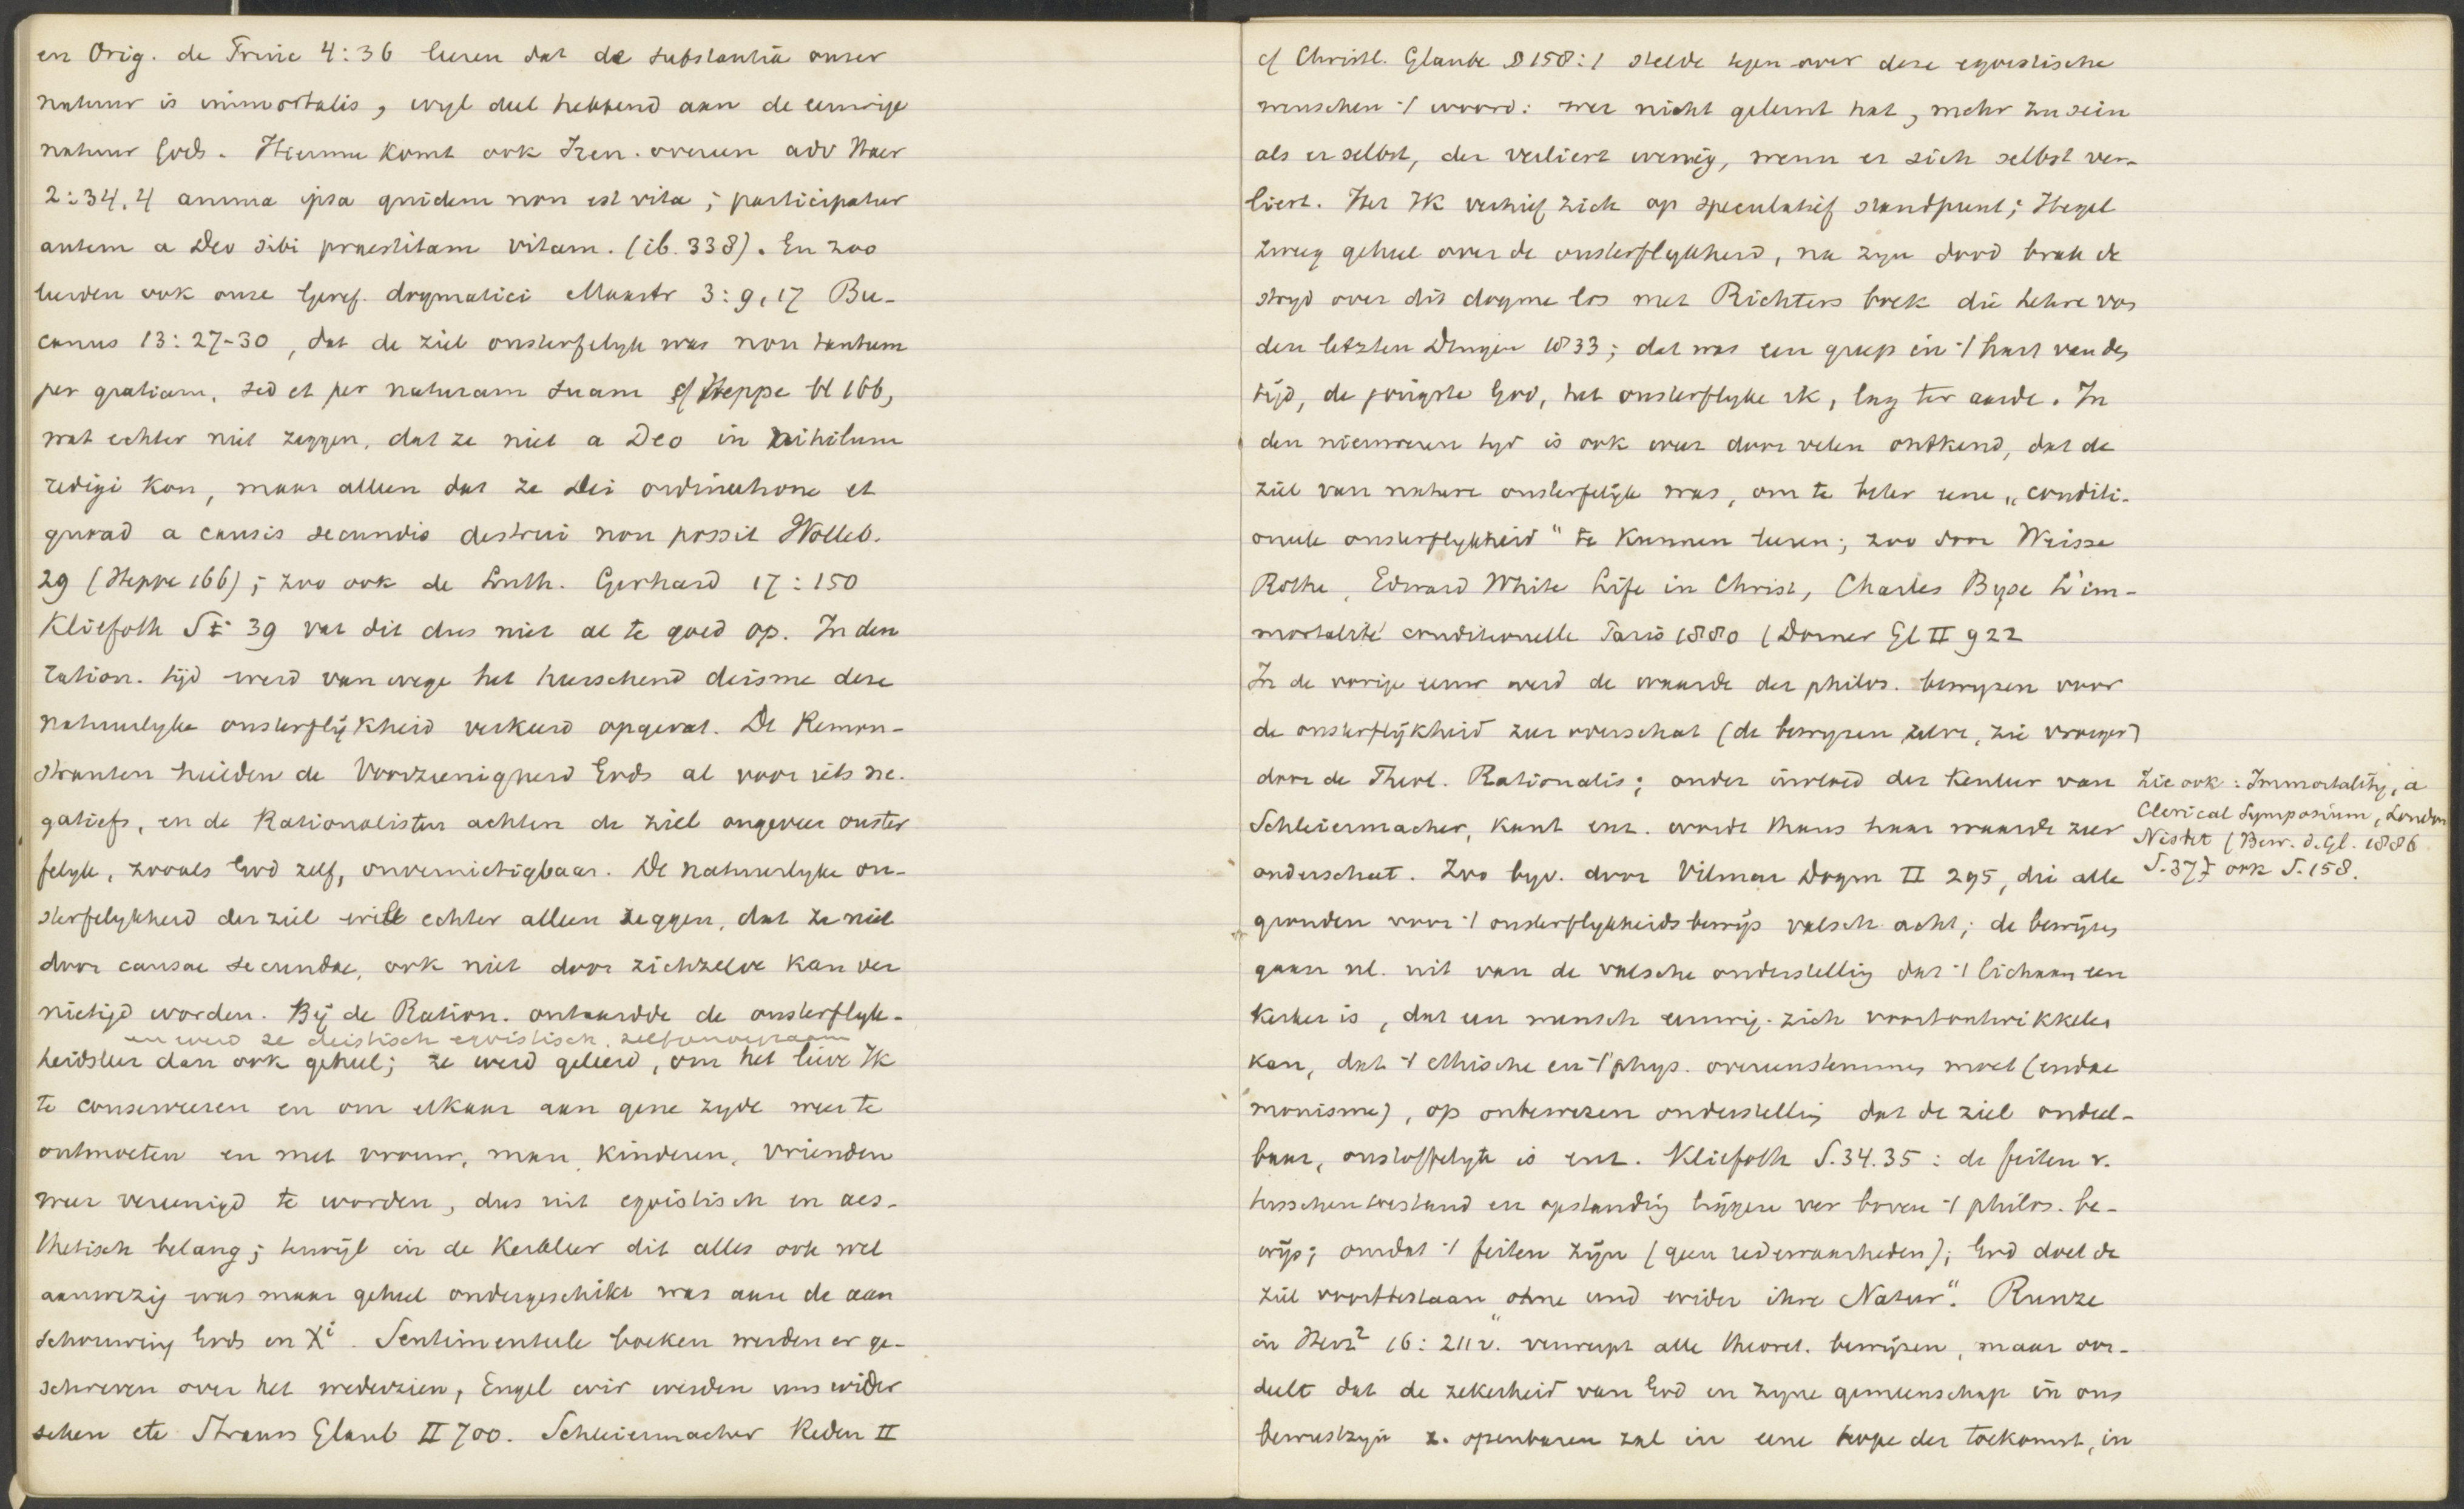 en Orig. de Princ 4:36 leeren dat de substantia onzer
natuur is immortalis, wyl deel hebbend aan de eeuwige
natuur Gods. Hiermee komt ook Iren. overeen adv Haer
2:34.4 anima ipsa quidem non est vita; participatur
autem a Deo sibi praestitam vitam. (ib. 338). En zoo
leerden ook onze Geref. dogmatici Maastr 3:9,17 Bu-
canus 13:27-30, dat de ziel onsterfelyk was non tantum
per gratiam, sed et per naturam suam cf Heppe bl 166,
wat echter niet zeggen, dat ze niet a Deo in nihilum
redigi kon, maar alleen dat ze Dei ordinatione et
quoad a causis secundis destrui non possit Wolleb.
29 (Heppe 166); zoo ook de Luth. Gerhard 17:150
Kliefoth S 39 vat dit dus niet al te goed op. In den
ration. tijd werd van wege het heerschend deisme deze
natuurlyke onsterflijkheid verkeerd opgevat. De Remon-
stranten hielden de Voorzienigheid Gods al voor iets ne-
gatiefs, en de Rationalisten achten de ziel ongeveer onster
felyk, zooals God zelf, onvernietigbaar. De natuurlyke on-
sterfelykheid der ziel will echter alleen zeggen, dat ze niet
door causae secundae, ook niet door zichzelve kan ver
nietigd worden. Bij de Ration. ontaardde de onsterflyk-
en werd ze deistisch egoistisch, zelfgenoegzaam
heidsleer dan ook geheel; ze werd geleerd, om het lieve Ik
te conserveeren en om elkaar aan gene zyde weer te
ontmoeten en met vrouw, man, kinderen, vrienden
weer vereenigd te worden, dus uit egoistisch en aes-
thetisch belang; terwijl in de Kerkleer dit alles ook wel
aanwezig was maar geheel ondergeschikt was aan de aan
schouwing Gods en Xi. Sentimenteele boeken werden er ge-
schreven over het wederzien, Engel wir werden uns wider
sehen etc Strauss Glaub II 700. Schleiermacher Reden II
cf Christl. Glaube § 158:1 stelde tegen over deze egoistische
menschen 't woord: wer nicht gelernt hat, mehr zu sein
als er selbst, der verliert wenig, wenn er sich selbst ver-
liert. Het Ik verhief zich op speculatief standpunt; Hegel
zweeg geheel over de onsterflykheid, na zyn dood brak de
stryd over dit dogma los met Richters boek die Lehre von
den letzten Dingen 1833; dat was een greep in 't hart van den
tijd, de jongste God, het onsterflyke ik, lag ter aarde. In
den nieuweren tyd is ook weer door velen ontkend, dat de
ziel van nature onsterfelijk was, om te beter eene „conditi-
oneele onsterflykheid" te kunnen leeren; zoo door Weisse
Rothe, Edward White Life in Christ, Charles Byse L'im-
mortalité conditionnelle Paris 1880 (Dorner Gl II 922
In de vorige eeuw werd de waarde der philos. bewyzen voor
de onsterflijkheid zeer overschat (de bewyzen zelve, zie vroeger)
door de Theol. Rationalis; onder invloed der Kentheor van
Schleiermacher, Kant enz. wordt thans haar waarde zeer
onderschat. Zoo byv. door Vilmar Dogm II 295, die alle
gronden voor 't onsterflykheidsbewijs valsch acht; de bewijzen
gaan nl. uit van de valsche onderstelling dat 't lichaam een
kerker is, dat een mensch eeuwig zich voortontwikkelen
kan, dat 't ethische en 't phys. overeenstemmen moet (endae
monisme), op onbewezen onderstelling dat de ziel ondeel-
baar, onstoffelyk is enz. Kliefoth S.34.35: de feiten v.
tusschentoestand en opstanding liggen ver boven 't philos. be-
wijs; omdat 't feiten zijn (geen redewaarheden); God doet de
ziel voortbestaan „ohne und wider ihre Natur". Runze
in Herz² 16:211v. verwerpt alle theoret. bewijzen, maar oor-
deelt dat de zekerheid van God en zyne gemeenschap in ons
bewustzyn z. openbaren zal in eene hope der toekomst, in
Zie ook: Immortality, a
Clerical Symposium, London
Nisbet (Bew. d. Gl. 1886
S.37) ook S.158.